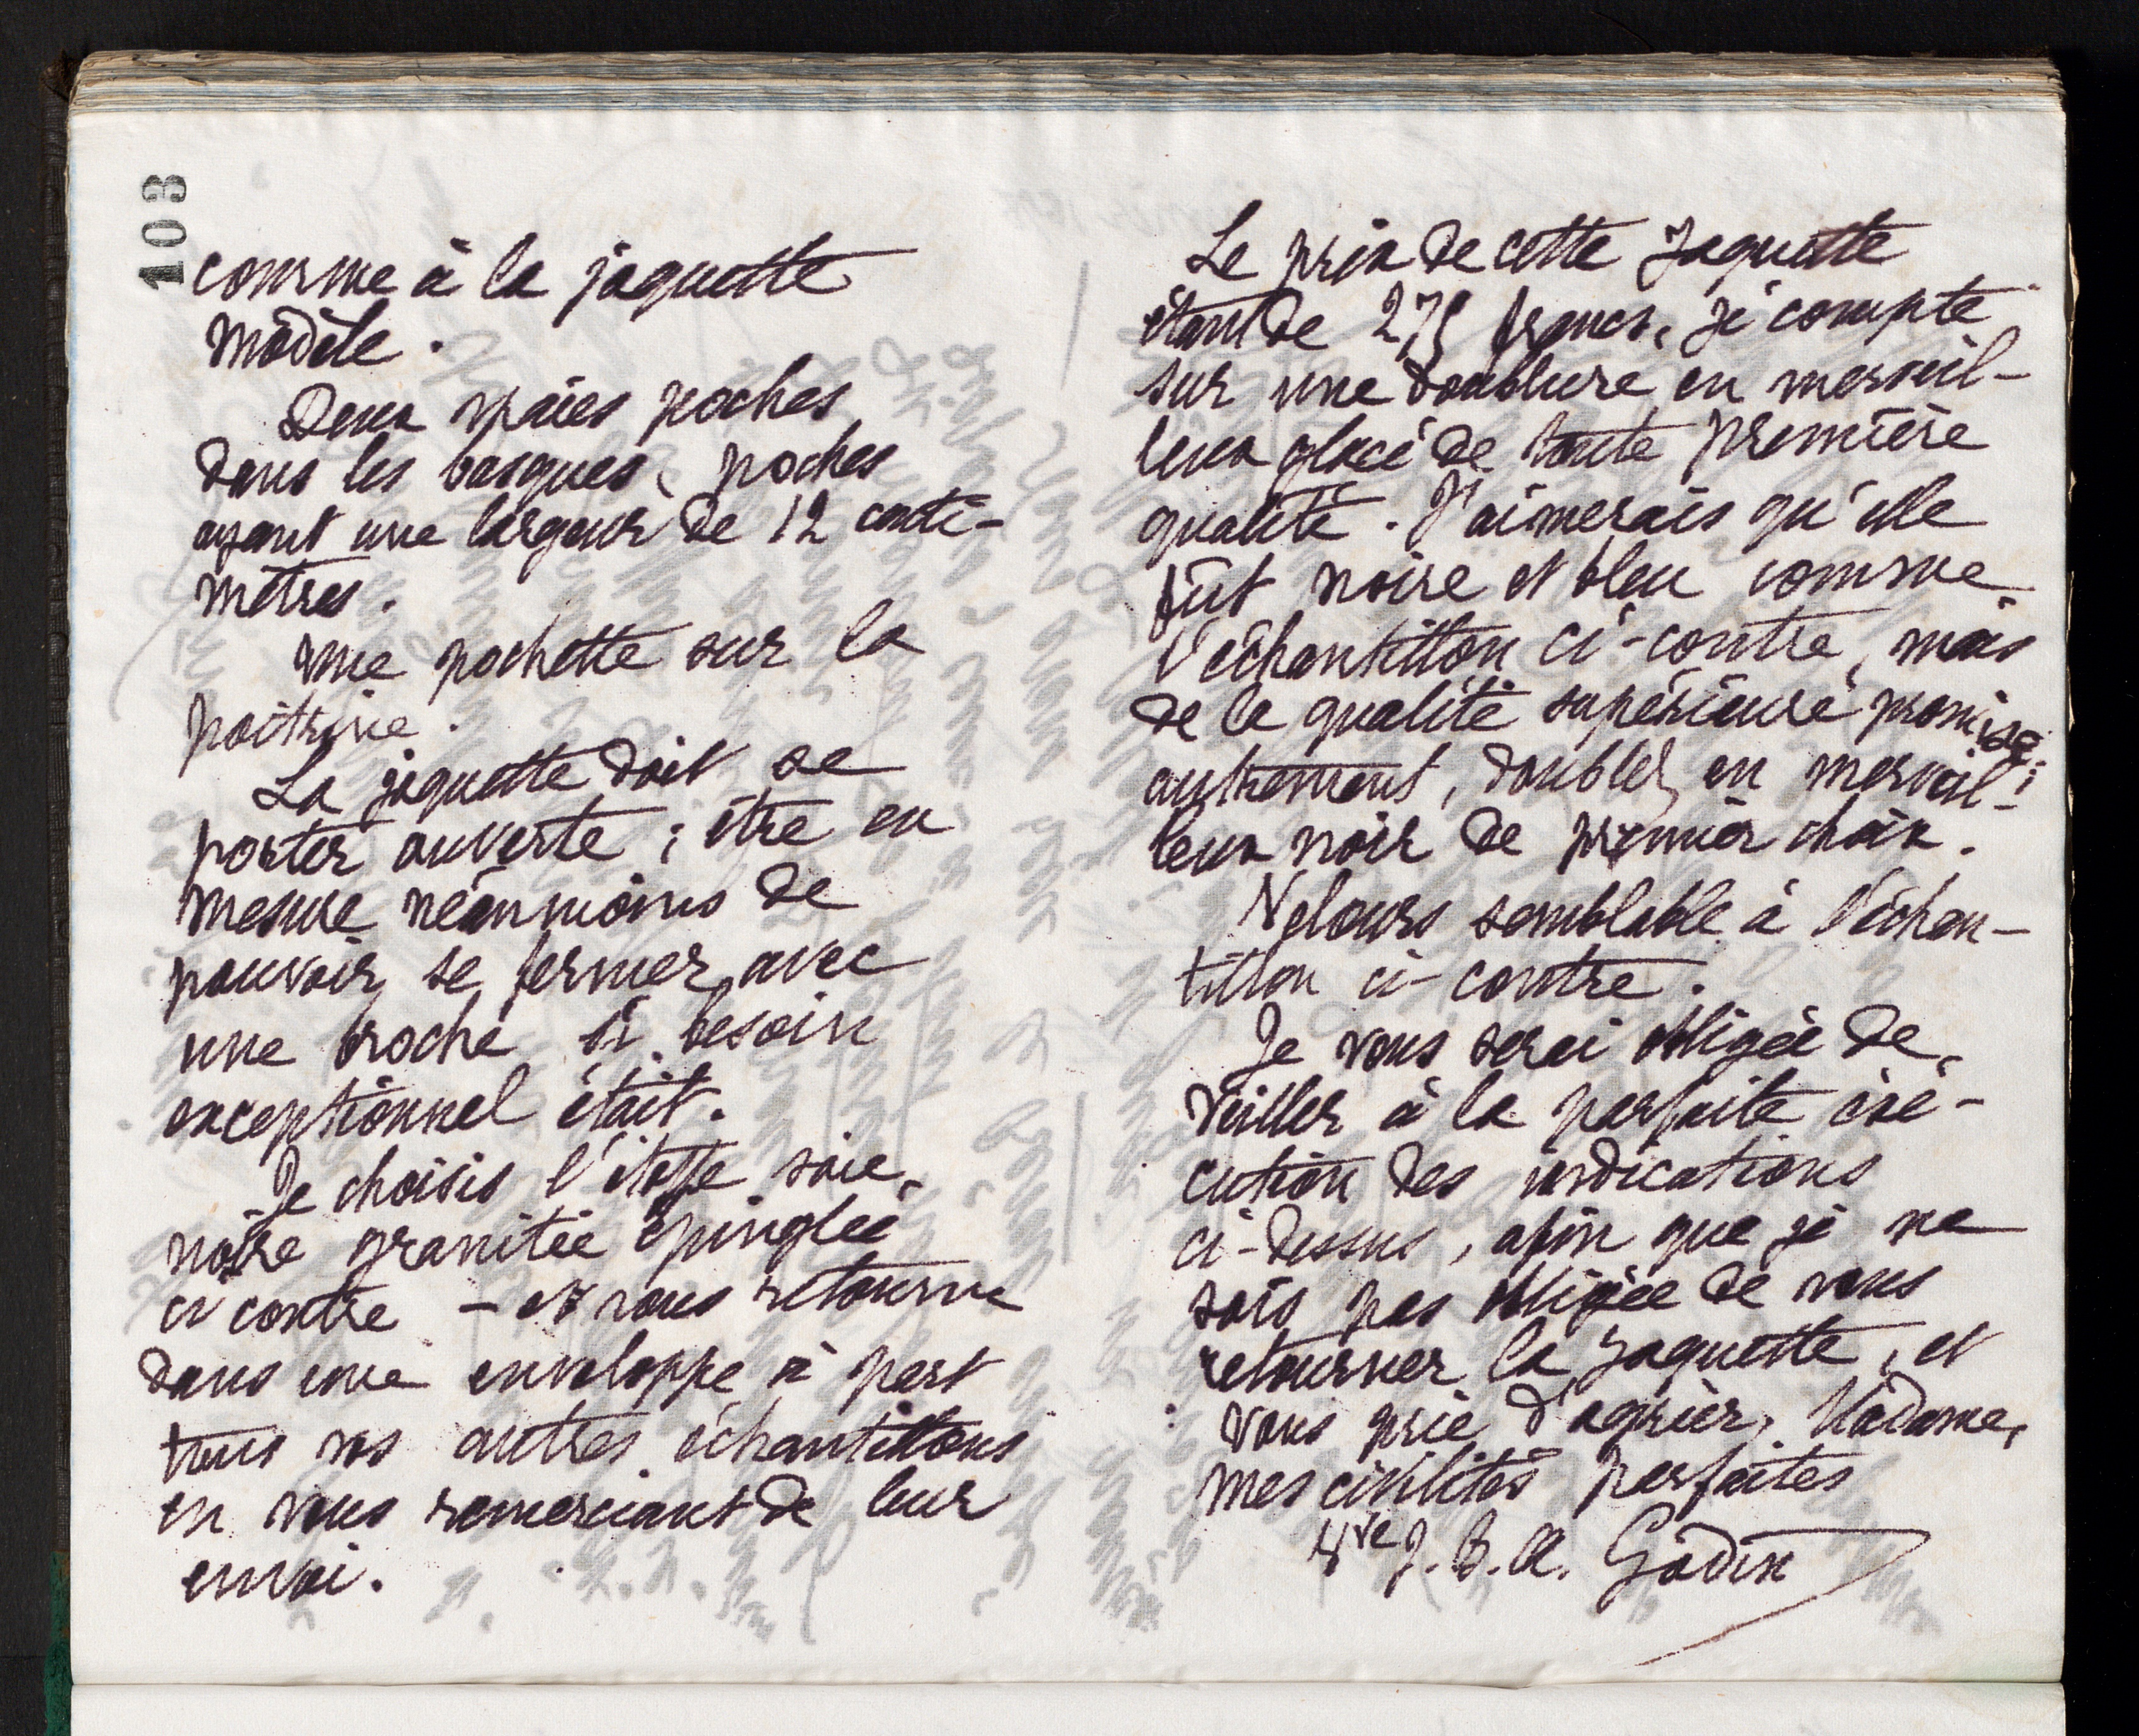 103
comme à la jaquette
modèle.
Deux vraies poches
dans les basques, poches
ayant une largeur de 12 centi-
mètres.
une pochette sur la
poitrine.
La jaquette doit se
porter ouverte ; être en
mesure néanmoins de
pouvoir se fermer avec
une broche si besoin
exceptionnel était.
Je choisis l'étoffe soie
noire granitée épinglée
ci contre - et vous retourne
dans une enveloppe à part
tous vos autres échantillons
en vous remerciant de leur
envoi.
Le prix de cette jaquette
étant de 275 francs, je compte
sur une doublure en merveil-
leux glacé de toute première
qualité. J'aimerais qu'elle
fût noire et bleu comme
l'échantillon ci-contre, mais
de la qualité supérieure promise ;
autrement, doublez en merveil-
leux noir de premier choix.
Velours semblable à l'échan-
tillon ci-contre.
Je vous serai obligée de
veiller à la parfaite exé-
cution des indications
ci-dessus, afin que je ne
sois pas obligée de vous
retourner la jaquette, et
vous prie d'agréer, Madame,
mes civilités parfaites
Vve J. B. A. Godin